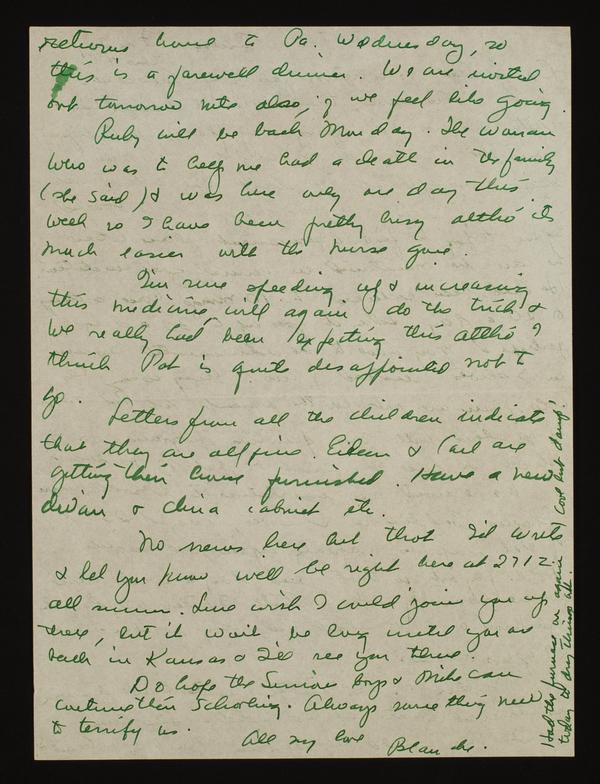 returns home to Pa. Wednesday, so
this is a farewell dinner. We are invited
out tomorrow nite also, if we feel like going.
Ruby will be back Monday. The woman
who was to help me had a death in the family
(she said) & was here only one day this
week so I have been pretty busy altho' its
much easier with the nurse gone.
I'm sure speeding up & increasing
this medicine will again do the trick &
we really had been expecting this altho' I
think Pat is quite disappointed not to
go.
Letters from all the children indicate
that they are all fine. Eileen & Carl are
getting their home furnished. Have a new
divan & china cabinet etc.
No news here but that I'd write
& let you know we'll be right here at 2712
all summer. Sure wish I could join you up
there, but it won't be long until you are
back in Kansas & I'll see you there.
Do hope the Senior boys & Mike can
continue their schooling. Always something new
to terrify us.
All my love
Blanche.
Had the furnace on again
today to dry things out. Cool but damp!